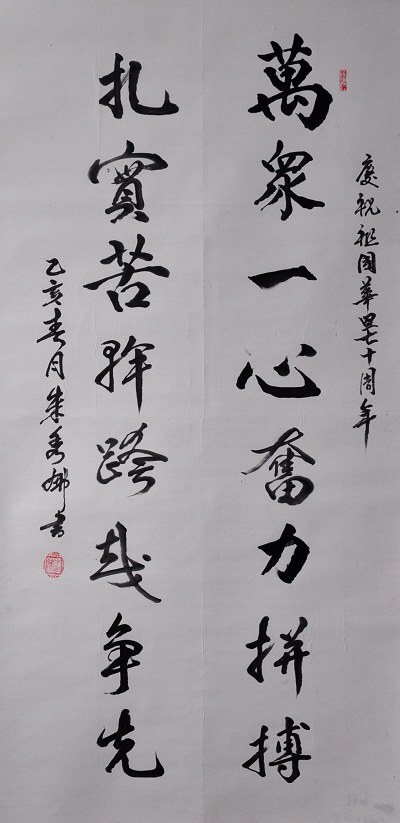 慶祝祖國華誕七十周年
萬眾一心奮力拼搏
扎實苦幹跨越争先
己亥春月朱秀娜书